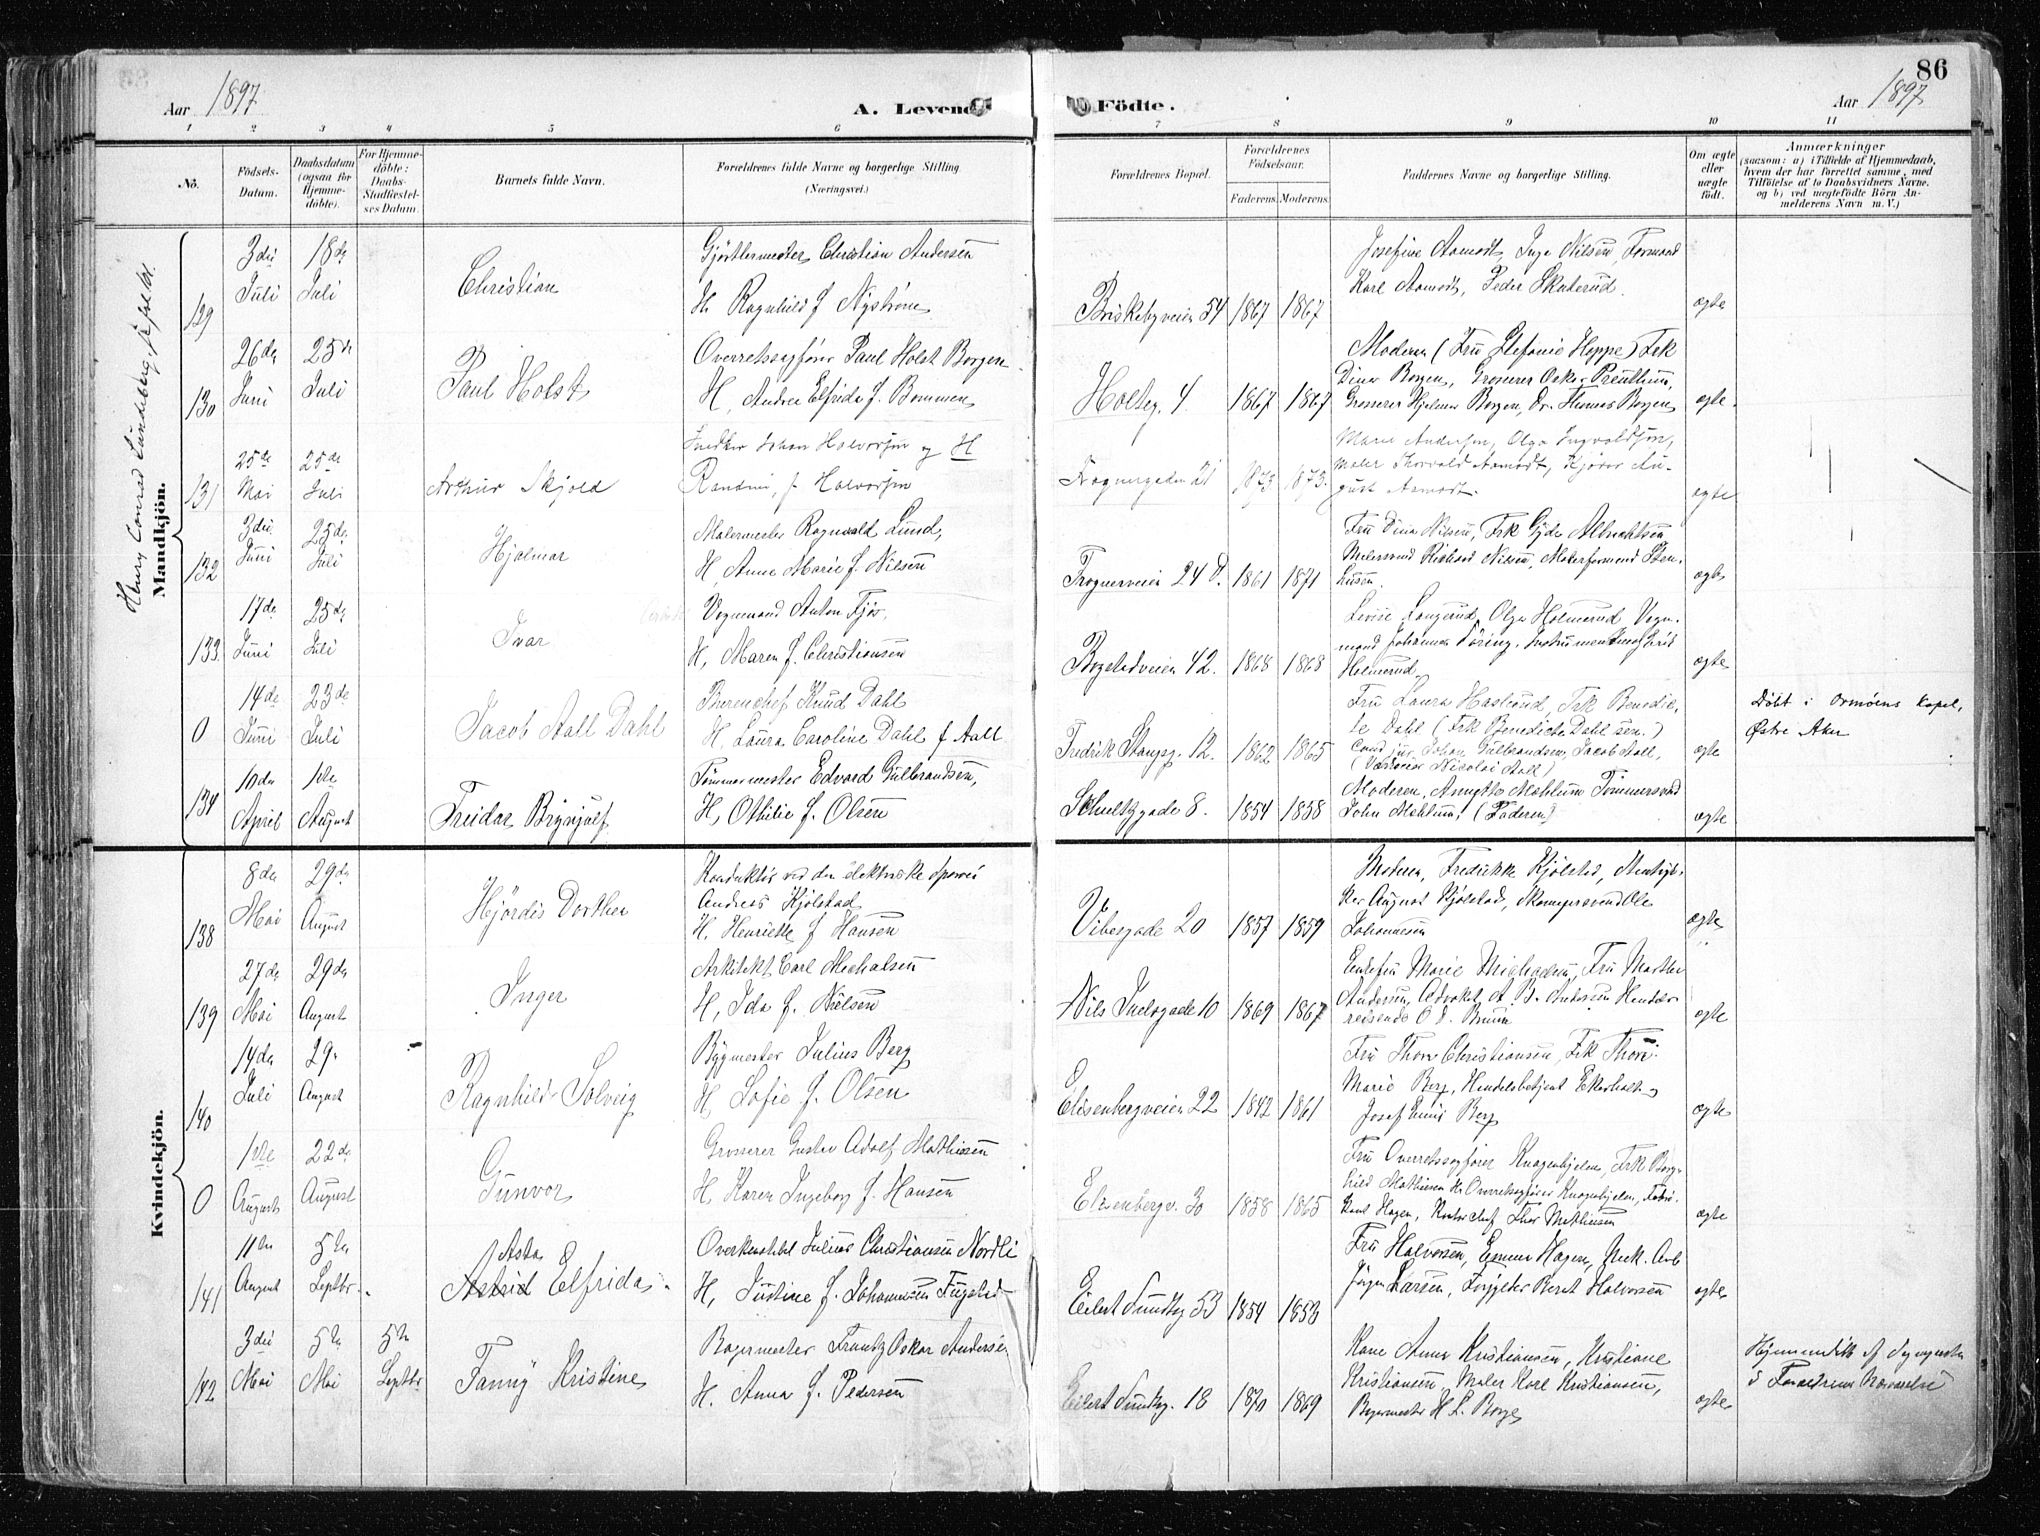 86
Aar 1897
A. Levende Födte.
Aar 1897
1 2 3 4 5 6 7 8 9 10 11
No.
Födsels-
Datum.
Daabsdatum
(ogsaa for
Hjemme-
döbte).
For Hjemme-
döbte:
Daabs-
Stadfæstel-
ses Datum.
Barnets fulde Navn.
Forældrenes fulde Navne og borgerlige Stilling
(Næringsvei.)
Forældrenes Bopæl.
Forældrenes
Födselsaar.
Faderens. Moderens.
Faddernes Navne og borgerlige Stilling.
Om ægte
eller
uægte
födt.
Anmærkninger
(saasom: a) i Tilfælde af Hjemmedaab,
hvem der har forrettet samme, med
Tilföielse af to Daabsvidners Navne,
og b) ved uægtefödte Börn An-
melderens Navn m. V.)
Henry Conrad Lundeberg
Mandkjön.
129
3die
Juli
18de
Juli
Christian
Gjørtlermester Christian Andersen
H. Ragnhild f Nystrøm
Briskebyveien 54
1867 1867
Josefine Aamodt, Inga Nilsen, Formand
Karl Aamodt, Peder Skaterud.
ægte
130
26de
Juni
25de
Juli
Paul Holst
Overretssagfører Paul Holst Borgen
H. Andrea Elfrida f. Bommen
Holteg. 4.
1867 1867
Moderen (Fru Stefanie Heppe) Frk
Dina Borgen, Grosserer Oskar
Grosserer Hjelmar Borgen, Dr. Thomas Borgen
ægte.
131
25de
Mai
25de
Juli
Arthur Skjold
Snedker Johan Halvorsen og H
Randine, f. Halvorsen
Frognergaden 21
1873 1873.
Marie Andersen, Olga Ingvaldsen,
Maler Thorvald Aamodt, Kjører Au-
gust Aamodt.
ægte
132
3die
Juni
25de
Juli
Hjalmar
Malermester Ragnvald Lund,
H. Anna Marie f. Nilsen
Frognerveien 24 D.
1861 1871
Fru Dina Nilsen, Frk Gyda Albrechtsen
Malersvend Richard Nilsen, Malerformand Sten-
ægte
133.
17de
Juni
25de
Juli
Ivar
Vognmand Anton Fjør,
H. Maren f. Christiansen
Bogstadveien 42.
1868 1868
Lovise Langerud, Olga Holmerud Vogn-
mand Johannes
Holmerud.
ægte
0
14de
Juni
23de
Juli
Jacob Aall Dahl
Bureauchef Knud Dahl
H. Laura Caroline Dahl f. Aall
Fredrik Stangsg. 12.
1862 1865
Fru Laura Haslund, Frk Benedic-
te Dahl (Frk Benedicte Dahl sen.)
Cand jur. Johan Gulbrandsen, Jacob Aall,
Nicolai Aall)
ægte
Döbt i Ormöens Kapel,
Østre Aker
134
10de
April
1ste
August
Freidar Brynjulf
Tømmermester Edvard Gulbrandsen,
H. Othilie f. Olsen
Schultzgade 8.
1854 1858
Moderen, Mæhlum Tømmersvend
John Mæhlum, (Faderen)
ægte
Kvindekjön.
138
8de
Mai
29de
August
Hjørdis Dorthea
Konduktør ved den elektriske sporvei
Andreas Kjølstad
H. Henriette f Hansen
Vibesgade 20
1857 1859
Moderen, Fredrikke Kjølstad,
August Kjølstad, Skomagersvend Ole
Johannesen
ægte
139
27de
Mai
29de
August
Inger
Arkitekt Carl Michalsen
H. Ida f. Nielsen
Nils Juelsgade 10
1869 1867
Enkefru Marie Michalsen, Fru Marthe
Andersen, Advokat A. B. Andersen Handels-
reisende O J. Bruun
ægte
140
14de
Juli
29.
August
Ragnhild Solveig
Bygmester Julius Berg
H. Sofie f. Olsen
Elisenbergveien 22
1842 1861
Fru Thora Christiansen, Frk Thora
Marie Berg, Handelsbetjent Ekerholt
Josef Berg
ægte
0
1ste
August
22de
August
Gunvor
Grosserer Gustav Adolf Mathiesen
H. Karen Ingeborg f. Hansen
Elisenbergv. 30
1858 1865
Fru Overretssagfører Knagenhjelm, Frk Borg-
hild Mathiesen Hr Overretssagfører Knagenhjelm,
Hagen, Kontorchef Thor Mathiesen
ægte
141
11te
August
5te
Septbr.
Asta
Astrid Elfrida
Overkonstabel Julius Christiansen Nordli
H. Justine f. Johannesen Fugstad
Eilert Sundtsg 53
1854 1853
Fru Halvorsen, Emma Hagen, Mek. Arb
Jørgen Larsen, Forgylder Bernt Halvorsen
ægte
142
3die
Mai
5te
Mai
5te
Septbr
Fanny Kristine
Bagermester Frantz Oskar Andersen
H. Anna f. Pedersen
Eilert Sundtsg. 18
1870 1869
Kone Anna Kristiansen, Kristiane
Kristiansen, Maler Karl Kristiansen,
Bagermester H L. Borge
ægte
Hjemmedöbt af
i Forældrenes Nærværelse